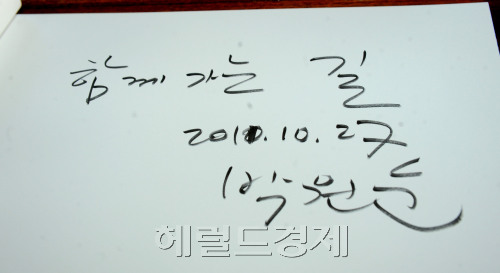 함께 가는 길
2011.10.27
박원순
헤럴드경제